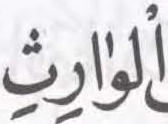 اْلوٰارِثِ